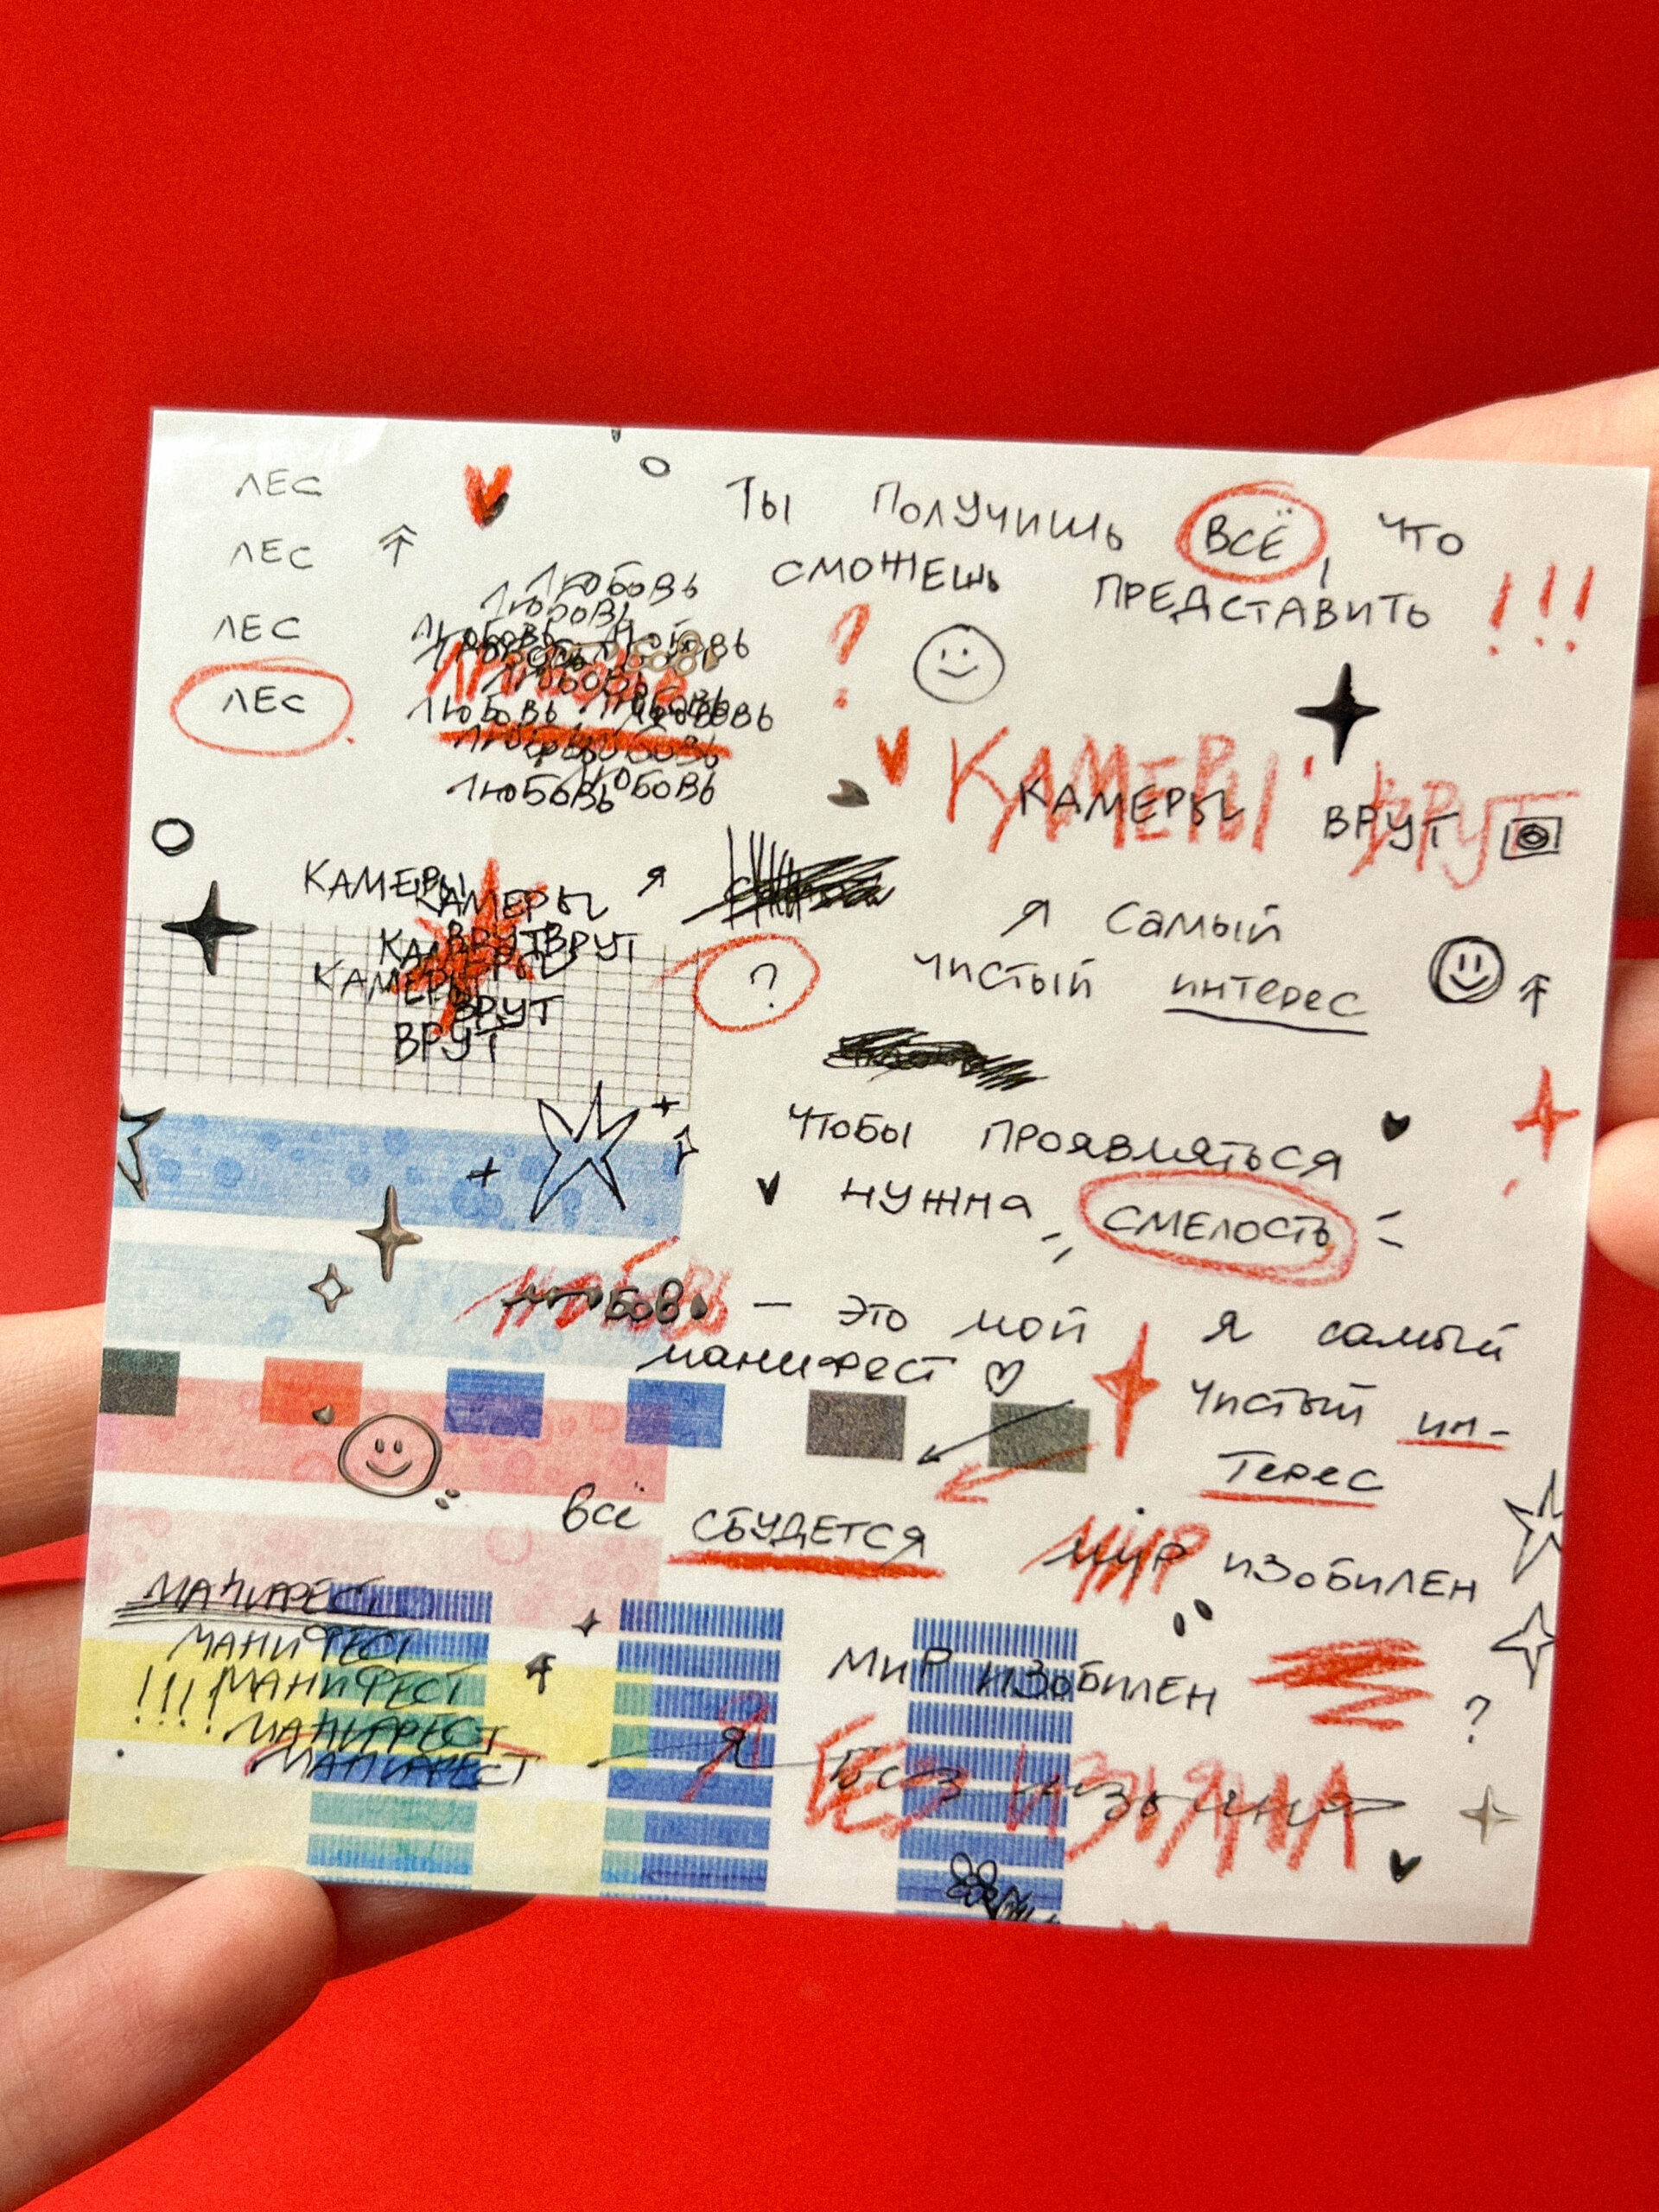 ЛЕС
ЛЕС
ЛЕС
ЛЕС
ТЫ ПОЛУЧИШЬ ВСЁ, ЧТО
СМОЖЕШЬ ПРЕДСТАВИТЬ !!!
ЛЮБОВЬ
ЛЮБОВЬ
ЛЮБОВЬ ЛЮБОВЬ
ЛЮБОВЬ
ЛЮБОВЬ ЛЮБОВЬ
ЛЮБОВЬ
ЛЮБОВЬ ЛЮБОВЬ
?
КАМЕРЫ ВРУТ
КАМЕРЫ ВРУТ
КАМЕРЫ КАМЕРЫ
ВРУТ ВРУТ
КАМЕРЫ
ВРУТ
ВРУТ
Я
?
Я САМЫЙ
ЧИСТЫЙ интерес
ЧТОБЫ ПРОЯВЛЯТЬСЯ
НУЖНА СМЕЛОСТЬ
ЛЮБОВЬ — ЭТО МОЙ
манифест
Я САМЫЙ
ЧИСТЫЙ ин-
терес
всё СБУДЕТСЯ
МИР ИЗОБИЛЕН
МАНИФЕСТ
МАНИФЕСТ
!!!! МАНИФЕСТ
МАНИФЕСТ
МАНИФЕСТ
МИР ИЗОБИЛЕН
?
Я БЕЗ ИЗЪЯНА